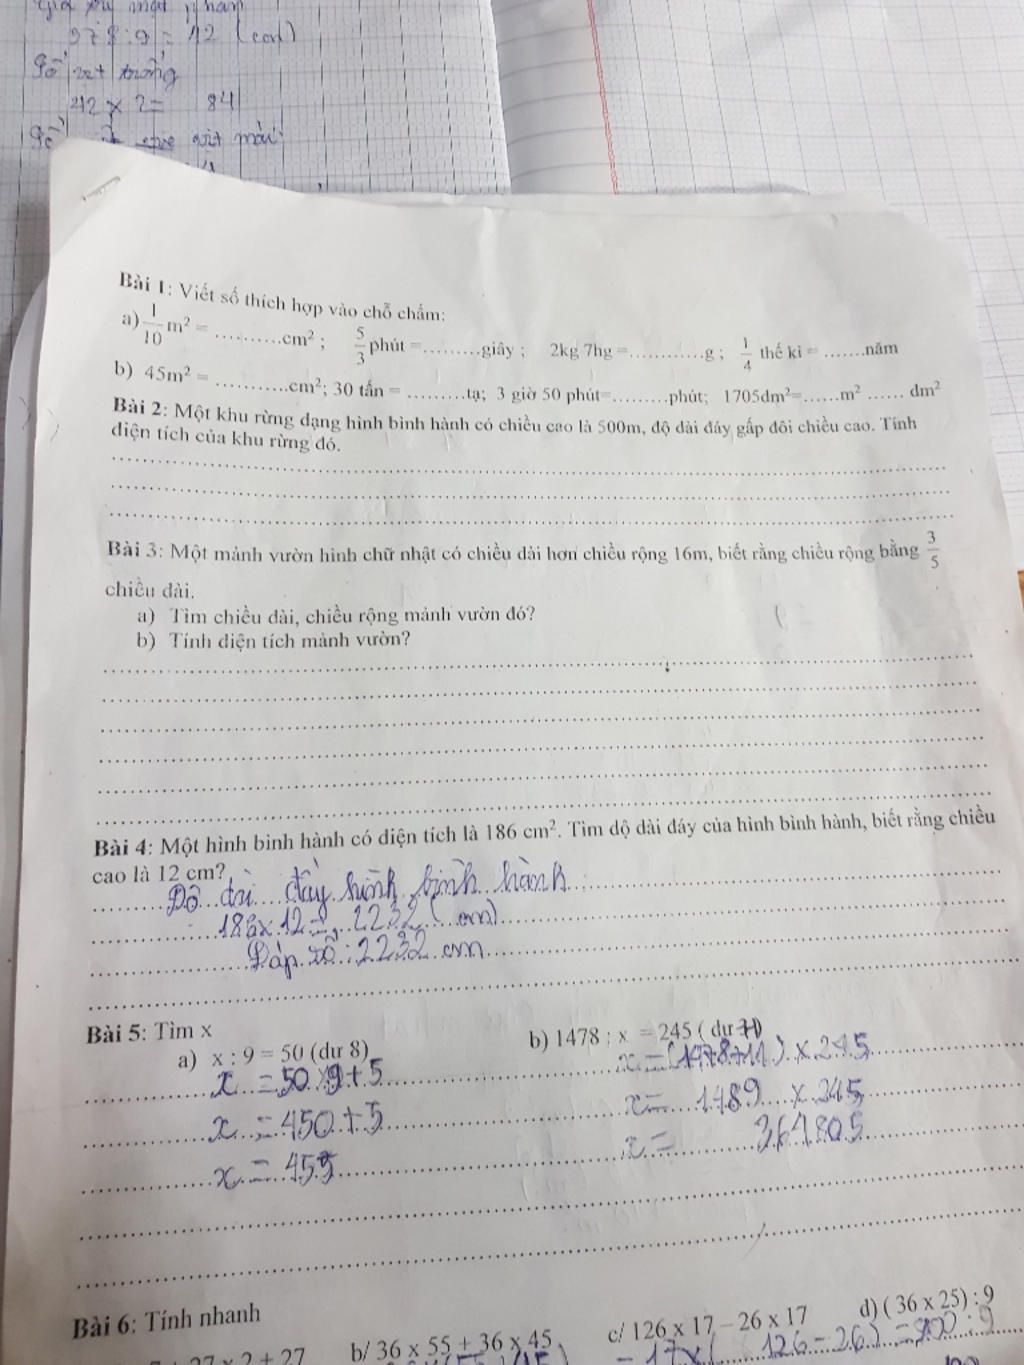 378 : 9 = 42 (con)
Số vịt trắng
42 x 2 = 84
Số vịt màu
Bài 1: Viết số thích hợp vào chỗ chấm:
a) 1/10 m² = ..........cm² ; 5/3 phút =.........giây ; 2kg 7hg =............g ; 1/4 thế kỉ = .......năm
b) 45m² = ...........cm²; 30 tấn = .........tạ; 3 giờ 50 phút=.........phút; 1705dm²=......m² ...... dm²
Bài 2: Một khu rừng dạng hình bình hành có chiều cao là 500m, độ dài đáy gấp đôi chiều cao. Tính
diện tích của khu rừng đó.
Bài 3: Một mảnh vườn hình chữ nhật có chiều dài hơn chiều rộng 16m, biết rằng chiều rộng bằng 3/5
chiều dài.
a) Tìm chiều dài, chiều rộng mảnh vườn đó?
b) Tính diện tích mảnh vườn?
Bài 4: Một hình bình hành có diện tích là 186 cm². Tìm độ dài đáy của hình bình hành, biết rằng chiều
cao là 12 cm?
Độ dài đáy hình bình hành
186 x 12 = 2232 (cm)
Đáp số: 2232 cm
Bài 5: Tìm x
a) x : 9 = 50 (dư 8) b) 1478 : x = 245 ( dư
x = 50 x 9 + 5 x = (1478+11) x 245
x = 450 + 5 x = 1489 x 245
x = 455 x = 364805
Bài 6: Tính nhanh
27 x 2 + 27 b/ 36 x 55 + 36 x 45 c/ 126 x 17 – 26 x 17 d) ( 36 x 25) : 9
= 17 x ( 126 - 26) = 900 : 9